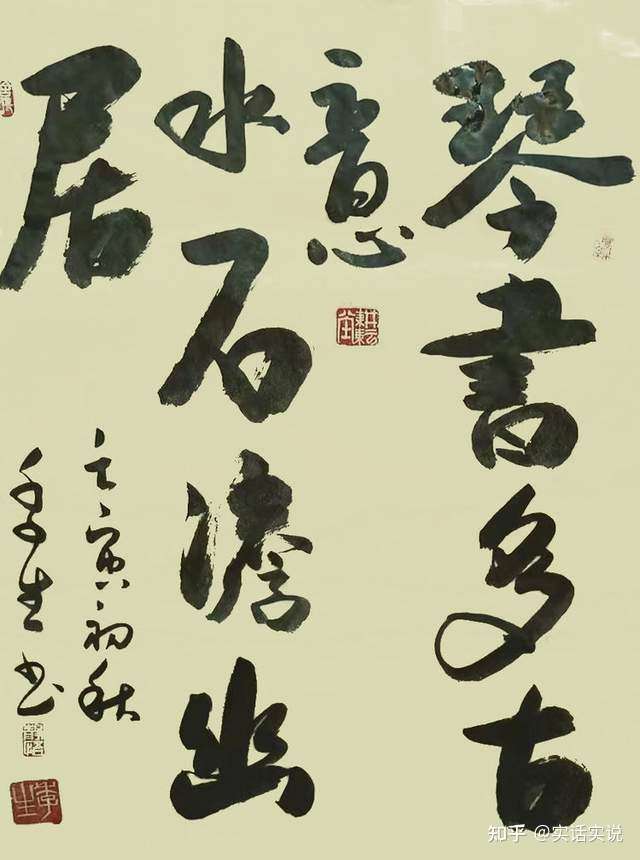 琴書多古
意
水石幽
居
壬寅初秋
季生书
季生
知乎 @实话实说